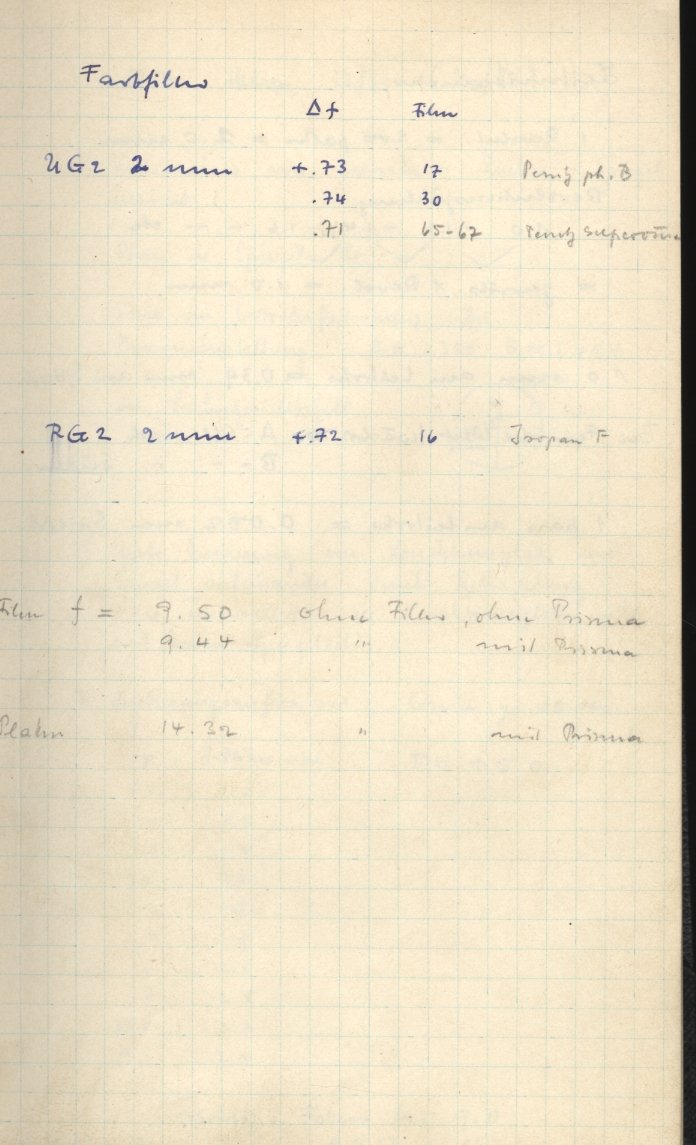 Farbfilter
Δf Film
UG2 2 mm +.73 17 Perutz ph. B
.74 30
.71 65-67 Perutz
RG2 2 mm +.72 16 Isopan F
Film f = 9.50 ohne Filter, ohne Prisma
9.44 " mit Prisma
Platten 14.32 " mit Prisma